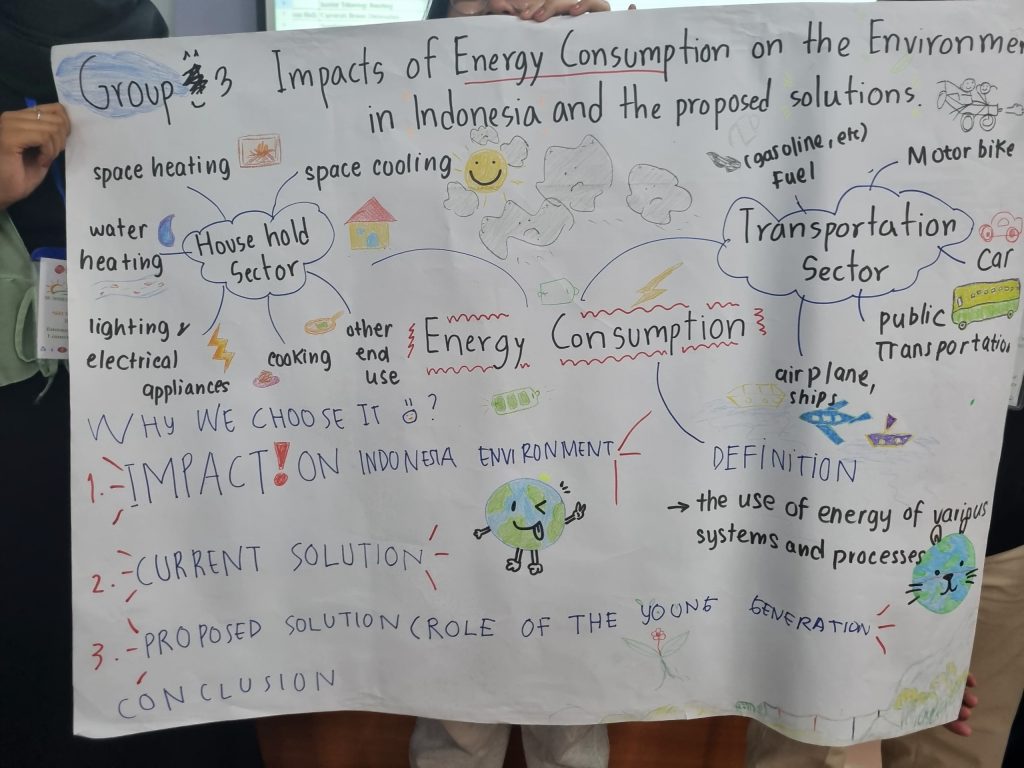 Group 3
Impacts of Energy Consumption on the Environmen
in Indonesia and the proposed solutions.
space heating
space cooling
water
heating
House hold
Sector
lighting &
electrical
appliances
cooking
other
end
use
Energy Consumption
(gasoline, etc)
fuel
Motor bike
Transportation
Sector
Car
public
Transportatio
airplane,
ships
WHY WE CHOOSE IT ?
1. IMPACT! ON INDONESIA ENVIRONMENT
2. CURRENT SOLUTION
3. PROPOSED SOLUTION (ROLE OF THE YOUNG GENERATION
CONCLUSION
DEFINITION
→ the use of energy of various
systems and processes